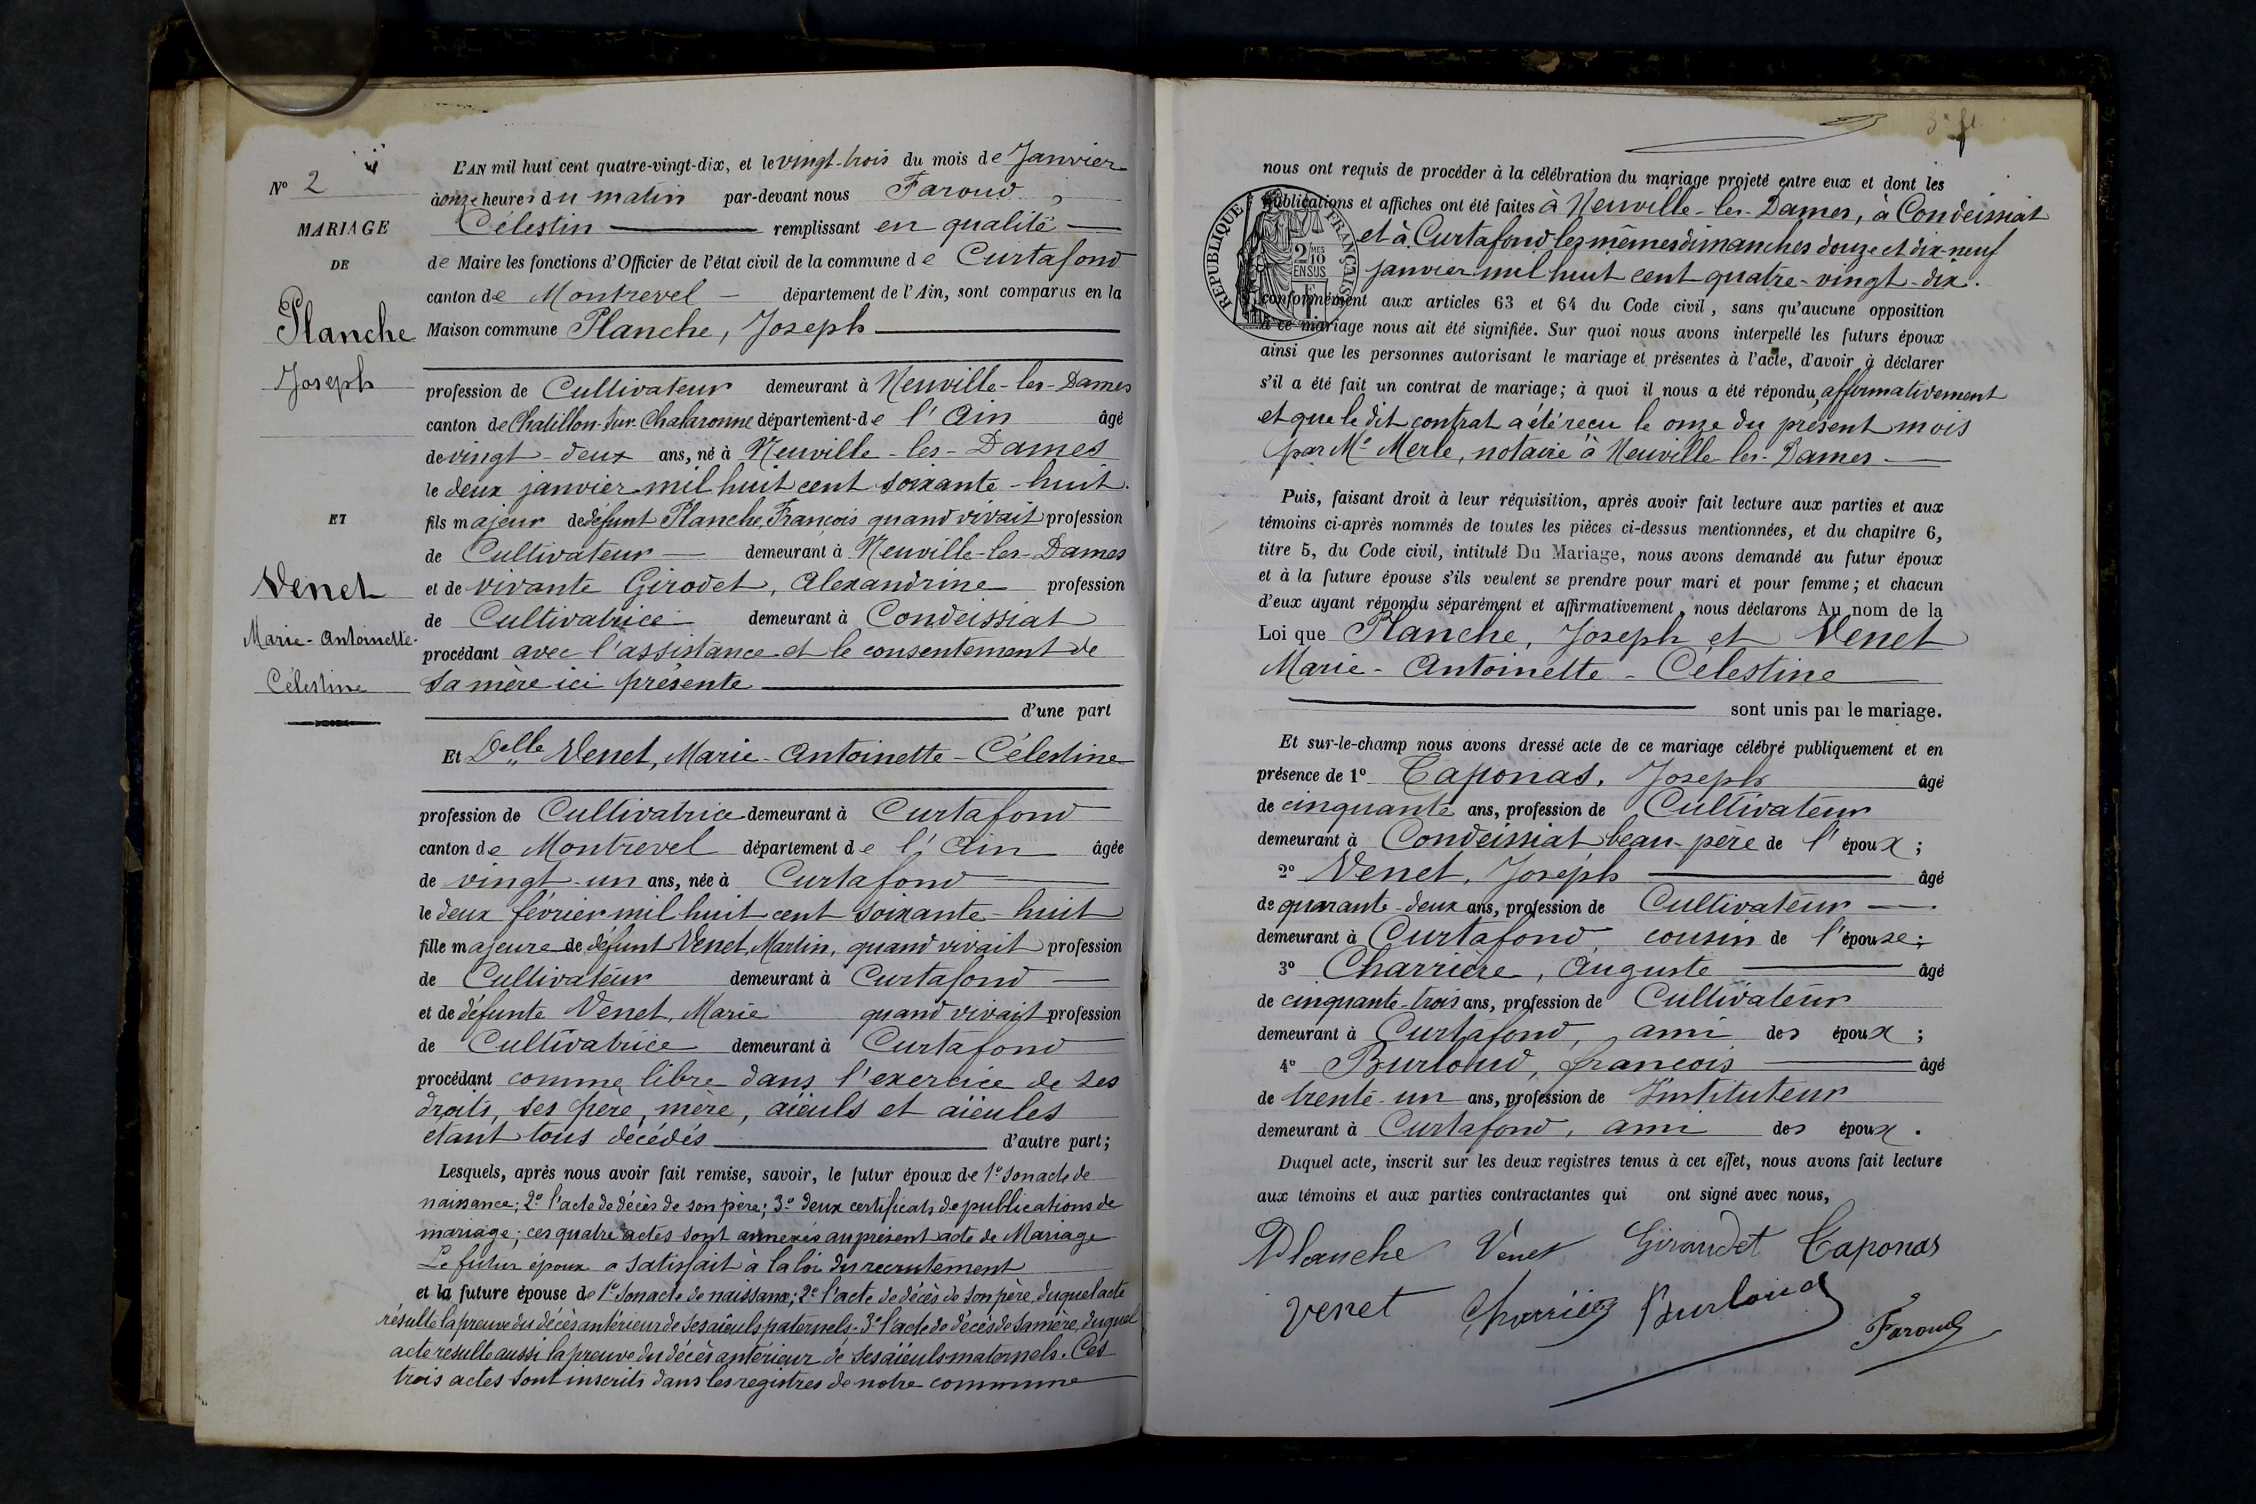 N° 2
MARIAGE
DE
Planche
Joseph
ET
Venet
Marie-Antoinette-
Célestine
L'AN mil huit cent quatre-vingt-dix, et le vingt-trois du mois de Janvier
à onze heures du matin par-devant nous Faroud,
Célestin remplissant en qualité
de Maire les fonctions d'Officier de l'état civil de la commune de Curtafond
canton de Montrevel département de l'Ain, sont comparus en la
Maison commune Planche, Joseph
profession de Cultivateur demeurant à Neuville-les-Dames
canton de Chatillon-sur-Chalaronne département de l'Ain âgé
de vingt-deux ans, né à Neuville-les-Dames
le deux janvier mil huit cent soixante-huit.
fils majeur de défunt Planche, François quand vivait profession
de Cultivateur demeurant à Neuville-les-Dames
et de vivante Girodet, Alexandrine profession
de Cultivatrice demeurant à Condeissiat
procédant avec l'assistance et le consentement de
sa mère ici présente
d'une part
Et Delle Venet, Marie-Antoinette-Célestine
profession de Cultivatrice demeurant à Curtafond
canton de Montrevel département de l'Ain âgée
de vingt-un ans, née à Curtafond
le deux février mil huit cent soixante-huit
fille majeure de défunt Venet, Martin, quand vivait profession
de Cultivateur demeurant à Curtafond
et de défunte Venet, Marie quand vivait profession
de Cultivatrice demeurant à Curtafond
procédant comme libre dans l'exercice de ses
droits, ses père, mère, aïeuls et aïeules
étant tous décédés d'autre part;
Lesquels, après nous avoir fait remise, savoir, le futur époux de 1° son acte de
naissance; 2° l'acte de décès de son père; 3° deux certificats de publications de
mariage; ces quatre actes sont annexés au présent acte de Mariage
Le futur époux a satisfait à la loi du recrutement
et la future épouse de 1° son acte de naissance; 2° l'acte de décès de son père, duquel acte
résulte la preuve du décès antérieur de ses aïeuls paternels; 3° l'acte de décès de sa mère, duquel
acte resulte aussi la preuve du décès antérieur de ses aïeuls maternels. Ces
trois actes sont inscrits dans les registres de notre commune
nous ont requis de procéder à la célébration du mariage projeté entre eux et dont les
publications et affiches ont été faites à Neuville-les-Dames, à Condeissiat
et à Curtafond les mêmes dimanches douze et dix-neuf
janvier mil huit cent quatre-vingt-dix.
RÉPUBLIQUE FRANÇAISE
2/10 EN SUS
conformément aux articles 63 et 64 du Code civil, sans qu'aucune opposition
à ce mariage nous ait été signifiée. Sur quoi nous avons interpellé les futurs époux
ainsi que les personnes autorisant le mariage et présentes à l'acte, d'avoir à déclarer
s'il a été fait un contrat de mariage; à quoi il nous a été répondu, affirmativement
et que le dit contrat a été reçu le onze du présent mois
par Me Merle, notaire à Neuville-les-Dames
Puis, faisant droit à leur réquisition, après avoir fait lecture aux parties et aux
témoins ci-après nommés de toutes les pièces ci-dessus mentionnées, et du chapitre 6,
titre 5, du Code civil, intitulé Du Mariage, nous avons demandé au futur époux
et à la future épouse s'ils veulent se prendre pour mari et pour femme; et chacun
d'eux ayant répondu séparément et affirmativement, nous déclarons Au nom de la
Loi que Planche, Joseph et Venet
Marie-Antoinette-Célestine
sont unis par le mariage.
Et sur-le-champ nous avons dressé acte de ce mariage célébré publiquement et en
présence de 1° Caponas, Joseph âgé
de cinquante ans, profession de Cultivateur
demeurant à Condeissiat beau-père de l'époux;
2° Venet, Joseph âgé
de quarante-deux ans, profession de Cultivateur
demeurant à Curtafond, cousin de l'épouse;
3° Charrière, Auguste âgé
de cinquante-trois ans, profession de Cultivateur
demeurant à Curtafond, ami des époux;
4° Burloud, françois âgé
de trente-un ans, profession de Instituteur
demeurant à Curtafond, ami des époux.
Duquel acte, inscrit sur les deux registres tenus à cet effet, nous avons fait lecture
aux témoins et aux parties contractantes qui ont signé avec nous,
Planche Venet Giraudet Caponas
venet Charrière Burloud Faroud